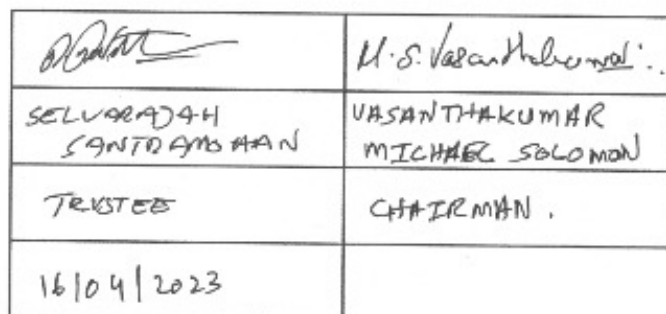 M.S. Vasanthakumar.
SELVARAJAH
SANTRAMOHAN
VASANTHAKUMAR
MICHAEL SOLOMON
TRUSTEE
CHAIRMAN.
16/04/2023